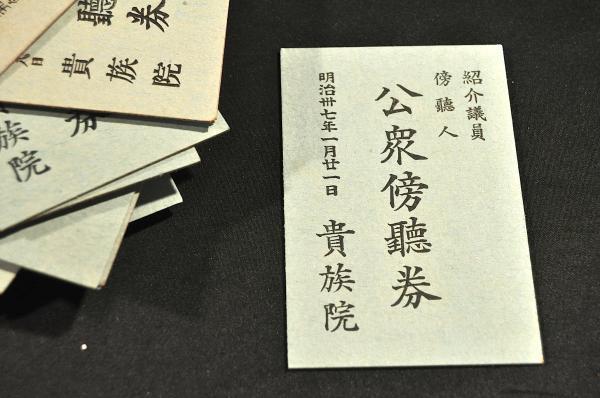 紹介議員
傍聽人
公衆傍聽券
明治卅七年一月廿一日
貴族院
聽券
日
貴族院
族院